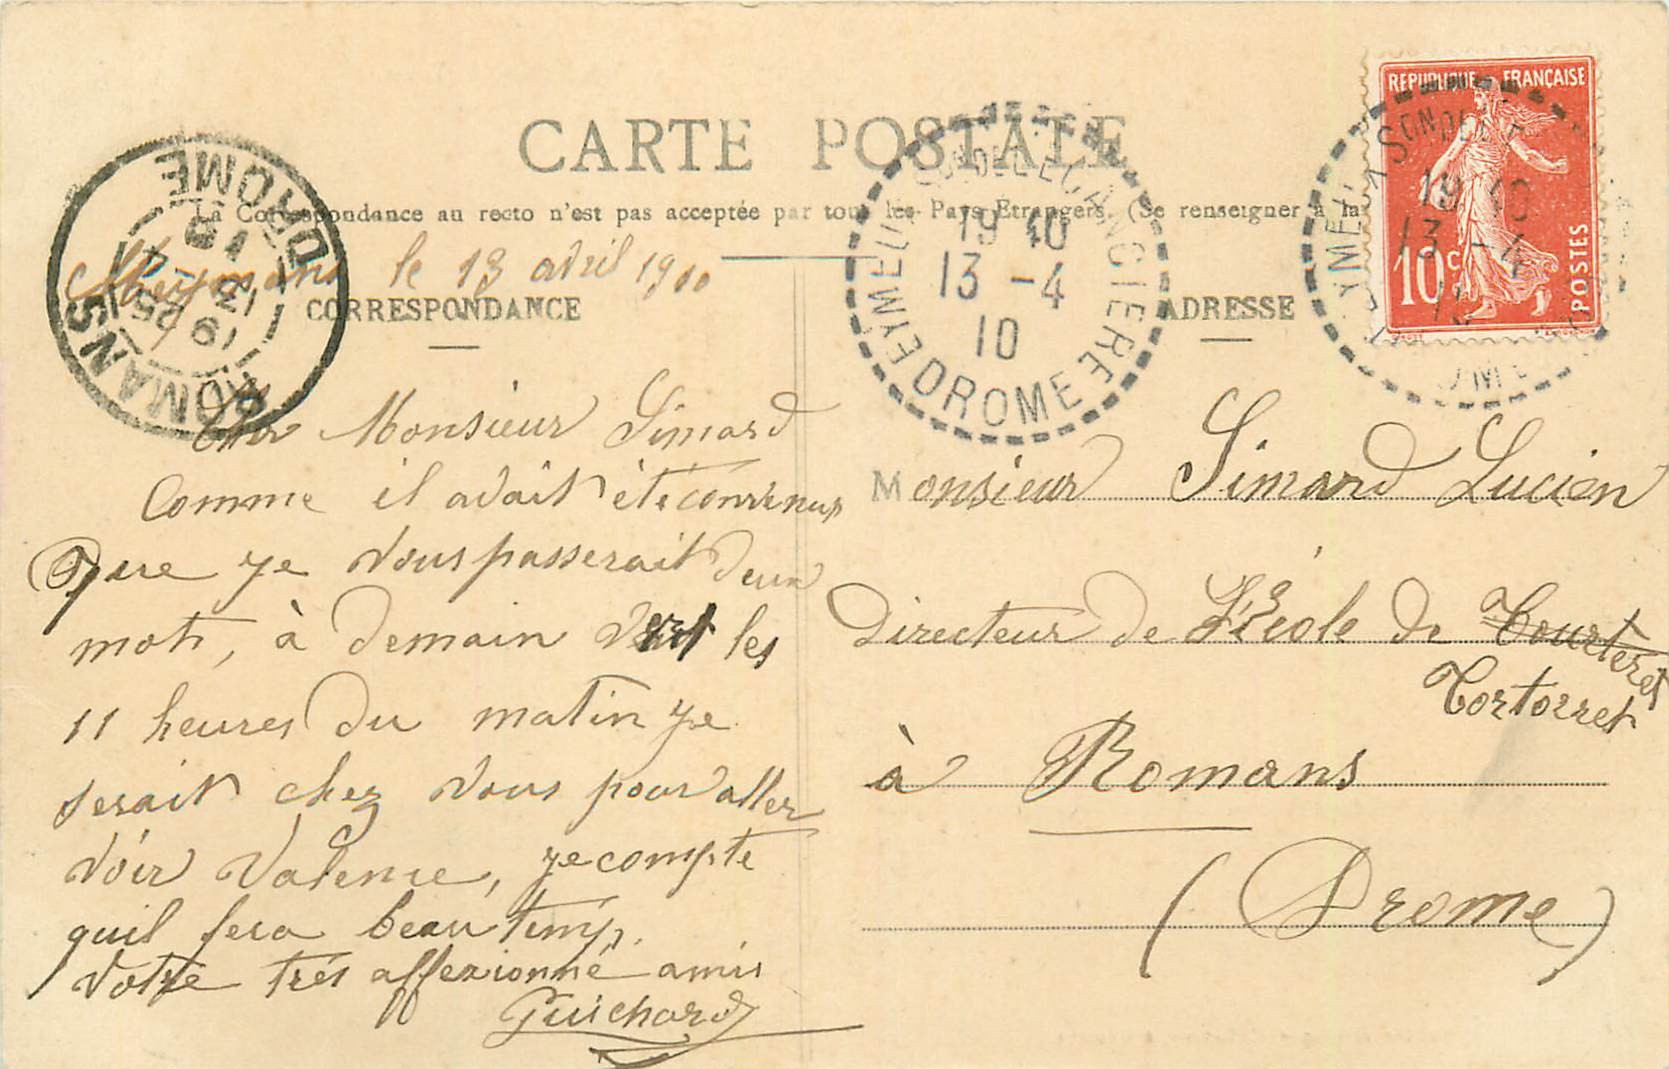 CARTE POSTALE
La Correspondance au recto n'est pas acceptée par tous les Pays Etrangers. (Se renseigner à la
le 13 avril 1910
CORRESPONDANCE
Cher Monsieur Simard
Comme il avait été convenus
Que je vous passerait deux
mots, à demain vers les
11 heures du matin je
serait chez vous pour aller
voir Valence, je compte
quil fera beau temp.
Votre très affexionné amis
Guichard
ADRESSE
Monsieur Simard Lucien
Directeur de L'École de Tourteret
Tortorret
à Romans
(Drome)
REPUBLIQUE FRANÇAISE
10c
POSTES
ROMANS
DROME
19 25
13 - 4
10
19 40
13 - 4
10
DROME
19 40
13 - 4
10